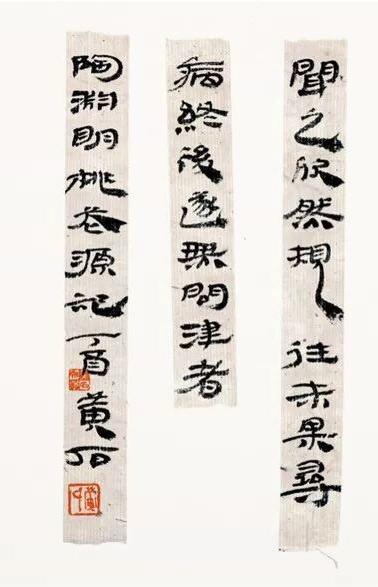 聞之欣然規往未果尋
病終後遂無問津者
陶淵明桃花源記丁酉黃石